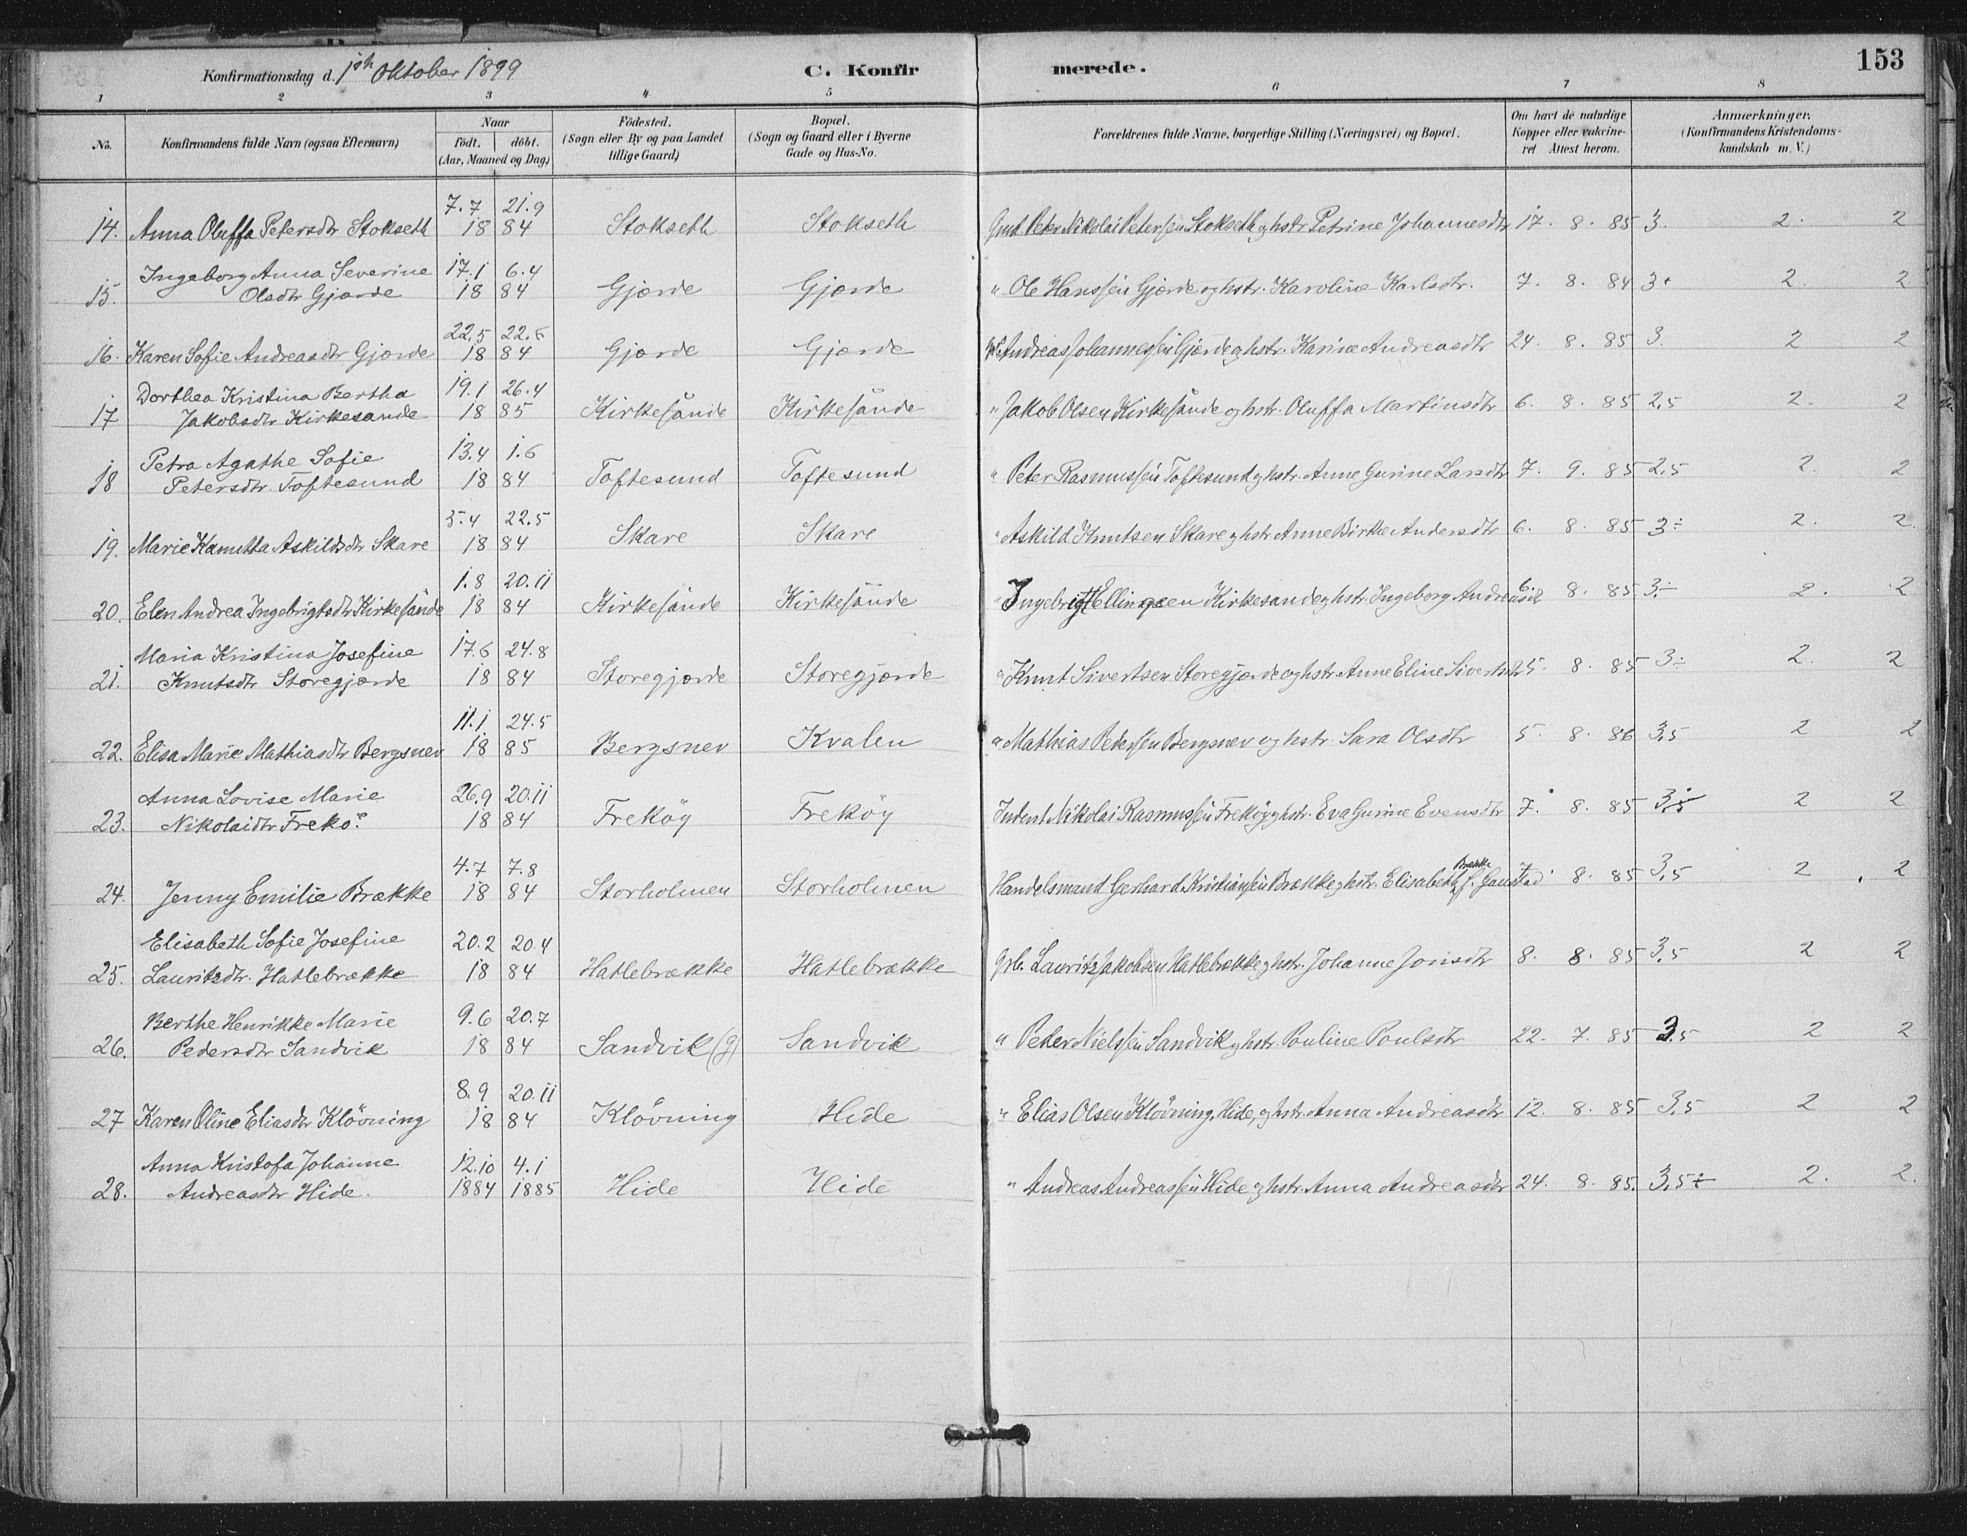 153
Konfirmationsdag d. 1ste Oktober 1899 C. Konfirmerede.
1 2 3 4 5 6 7 8
No. Konfirmandens fulde Navn (ogsaa Efternavn) Naar födt. döbt. (Aar, Maaned og Dag) Födested. (Sogn eller By og paa Landet tillige Gaard) Bopæl. (Sogn og Gaard eller i Byerne Gade og Hus-No. Forældrenes fulde Navne, borgerlige Stilling (Næringsvei) og Bopæl. Om havt de naturlige Kopper eller vakcineret Attest herom. Anmærkninger. (Konfirmandens Kristendomskundskab m. V.)
7.7 21.9
14. Anna Oluffa Petersdtr Stokseth 18 84 Stokseth Stokseth Peter Nikolai Petersen Stokseth og hstr Petrine Johannesdtr 17. 8. 85 3. 2. 2
Ingeborg Anna Severine 17.1 6.4
15. Olsdtr Gjærde 18 84 Gjærde Gjærde " Ole Hanssen Gjærde og hstr. Karoline Karlsdtr. 7. 8. 84 3+ 2. 2
22.5 22.6
16. Karen Sofie Andreasdtr Gjærde 18 84 Gjærde Gjærde Andreas Johannessen Gjærde og hstr. Karine Andreasdtr 24. 8. 85 3. 2 2
Dorthea Kristina Bertha 19.1 26.4
17 Jakobsdtr Kirkesande 18 85 Kirkesånde Kirkesånde " Jakob Olsen Kirkesånde og hstr. Oluffa Martinsdtr 6. 8. 85 2,5 2. 2
Petra Agathe Sofie 13.4 1.6
18 Petersdtr. Toftesund 18 84 Toftesund Toftesund " Peter Rasmussen Toftesund og hstr. Anne Gurine Larsdtr 7. 9. 85 2,5 2. 2
5.4 22.5
19. Marie Kanutta Askildsdtr Skare 18 84 Skare Skare " Askild Knutsen Skare og hstr Anne Birthe Andersdtr 6. 8. 85 3÷ 2. 2.
1.8 20.11
20. Elen Andrea Ingebrigtsdtr Kirkesånde 18 84 Kirkesånde Kirkesånde " Ingebrigt Ellingsen Kirkesande og hstr Ingeborg Andreasdtr 6. 8. 85 3÷ 2. 2
Maria Kristina Josefine 17.6 24.8
21. Knutsdtr Storegjærde 18 84 Storegjærde Storegjærde " Knut Sivertsen Storegjærde og hstr. Anne Eline Sivertsdtr 25. 8. 85 3÷ 2. 2
11.1 24.5
22. Elisa Marie Mathiasdtr Bergsnev 18 85 Bergsnev Kvalen " Mathias Petersen Bergsnev og hstr. Sara Olsdtr 5. 8. 86 3,5 2 2
Anna Lovise Marie 26.9 20.11
23. Nikolaidtr Frekö. 18 84 Freköy Freköy Inderst Nikolai Rasmussen Freköy og hstr. Eva Gurine Evensdtr 7. 8. 85 3,5 2 2
4.7 7.8
24. Jenny Emilie Brække 18 84 Storholmen Storholmen Handelsmand Gerhard Kristiansen Brække og hstr. Elisabeth Brække f. Gaustad 7. 8. 85 3,5 2 2
Elisabeth Sofie Josefine 20.2 20.4
25. Lauritzdtr. Hatlebrække 18 84 Hatlebrække Hatlebrække Grb. Lauritz Jakobsen Hatlebrække og hstr. Johanne Jonsdtr 8. 8. 85 3,5 2 2
Berthe Henrikke Marie 9.6 20.7
26. Pedersdtr Sandvik 18 84 Sandvik (g) Sandvik " Peder Nielsen Sandvik og hstr. Pouline Poulsdtr 22. 7. 85 3,5 2 2
8.9 20.11
27 Karen Oline Eliasdtr Klövning 18 84 Klövning Hide " Elias Olsen Klövning, Hide, og hstr. Anna Andreasdtr 12. 8. 85 3,5 2 2
Anna Kristofa Johanne 12.10 4.1
28. Andreasdtr Hide. 1884 1885 Hide Hide " Andreas Andreassen Hide og hstr. Anna Andreasdtr 24. 8. 85. 3,5÷ 2. 2.